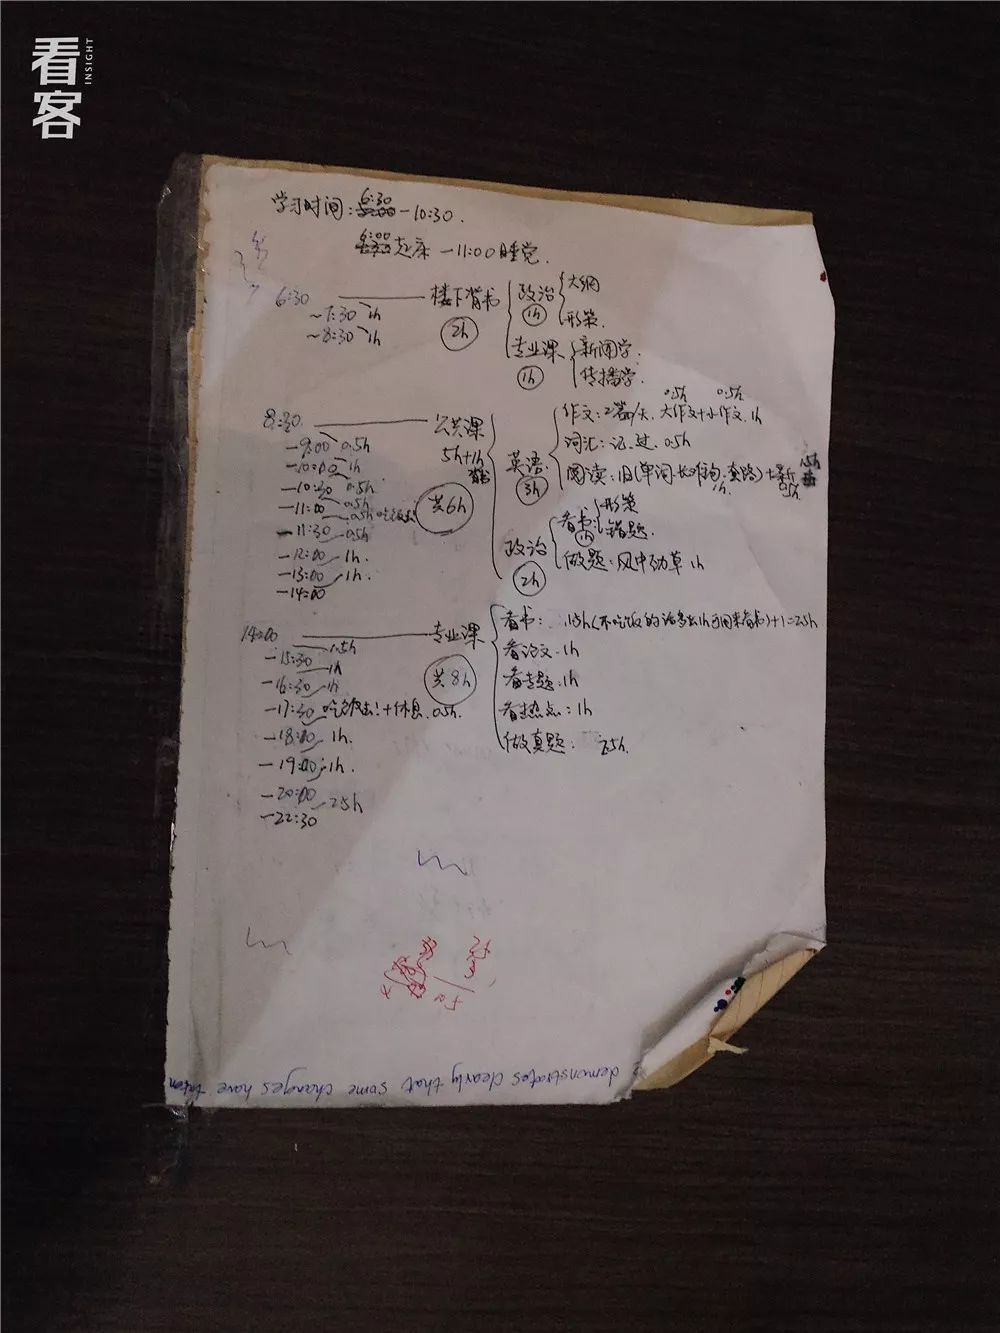 看客
INSIGHT
学习时间：6:30-10:30.
6:00起床-11:00睡觉.
6:30 楼下背书 2h
~7:30 1h
~8:30 1h
政治 1h
大纲
形策.
专业课 1h
新闻学.
传播学.
8:30 公共课 5h+1h 共6h
-9:00 0.5h
-10:00 1h
-10:30 0.5h
-11:00 0.5h
0.5h吃饭去
-11:30 0.5h
-12:00 1h.
-13:00 1h.
-14:00
英语 3h
0.5h 0.5h
作文：2篇/天. 大作文+小作文. 1h
词汇：记.过. 0.5h
阅读：旧(单词.长难句.套路)+新 1.5h
1h. 0.5h
政治 2h
看书：1h
形策
错题.
做题：风中劲草 1h
14:00 专业课 共8h
1.5h
-15:30 1h
-16:30 1h
-17:30 吃饭去!+休息. 0.5h.
-18:00 1h.
-19:00 1h.
-20:00 2.5h
-22:30
看书：1.5h(不吃饭的话多出1h可用来看书)+1=2.5h
看论文.1h
看专题：1h
看热点：1h
做真题：2.5h.
demonstrates clearly that some changes have taken